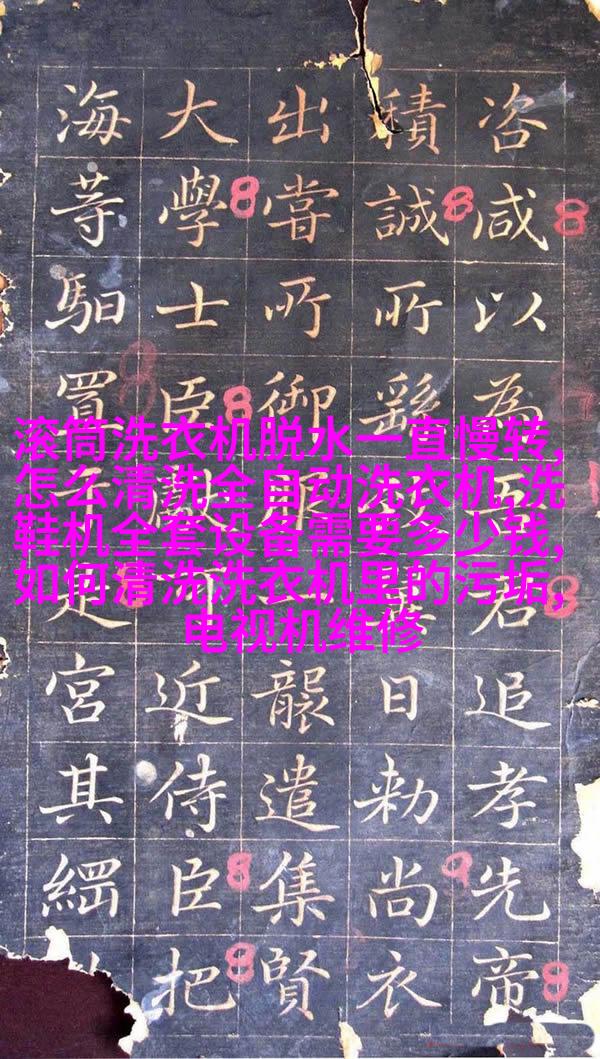 咨咸以為君追孝先帝
積誠所繇日勅尚衣
出嘗所御服一襲遣集賢
大學士臣近侍臣把
海等馹置宮其
滚筒洗衣机脱水一直慢转,
怎么清洗全自动洗衣机,洗
鞋机全套设备需要多少钱,
如何清洗洗衣机里的污垢,
电视机维修